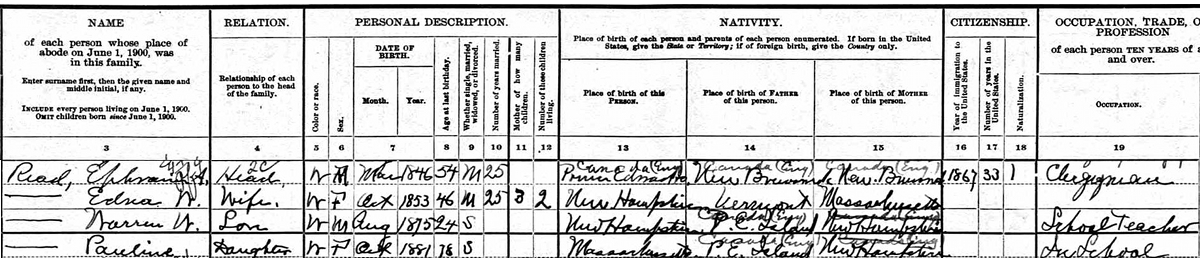 NAME RELATION. PERSONAL DESCRIPTION. NATIVITY. CITIZENSHIP. OCCUPATION, TRADE, O
PROFESSION
of each person whose place of
abode on June 1, 1900, was
in this family.
Enter surname first, then the given name and
middle initial, if any.
INCLUDE every person living on June 1, 1900.
OMIT children born since June 1, 1900.
Relationship of each
person to the head
of the family.
Color or race.
Sex.
DATE OF
BIRTH.
Month. Year.
Age at last birthday.
Whether single, married,
widowed, or divorced.
Number of years married.
Mother of how many
children.
Number of these children
living.
Place of birth of each person and parents of each person enumerated. If born in the United
States, give the State or Territory; if of foreign birth, give the Country only.
Place of birth of this
PERSON.
Place of birth of FATHER
of this person.
Place of birth of MOTHER
of this person.
Year of immigration to
the United States.
Number of years in the
United States.
Naturalization.
of each person TEN YEARS of a
and over.
OCCUPATION.
3 4 5 6 7 8 9 10 11 12 13 14 15 16 17 18 19
Canada (Eng) Canada (Eng) Canada (Eng)
Read, Ephraim Head W M Mar 1846 54 M 25 New Brunswick New Brunswick 1867 33 Clergyman
— Edna W. Wife W F Oct 1853 46 M 25 3 2 New Hampshire Vermont Massachusetts
— Warren W. Son W M Aug 1875 24 S New Hampshire P. E. Island New Hampshire School Teacher
— Pauline Daughter W F Oct 1881 18 S Massachusetts P. E. Island New Hampshire In School